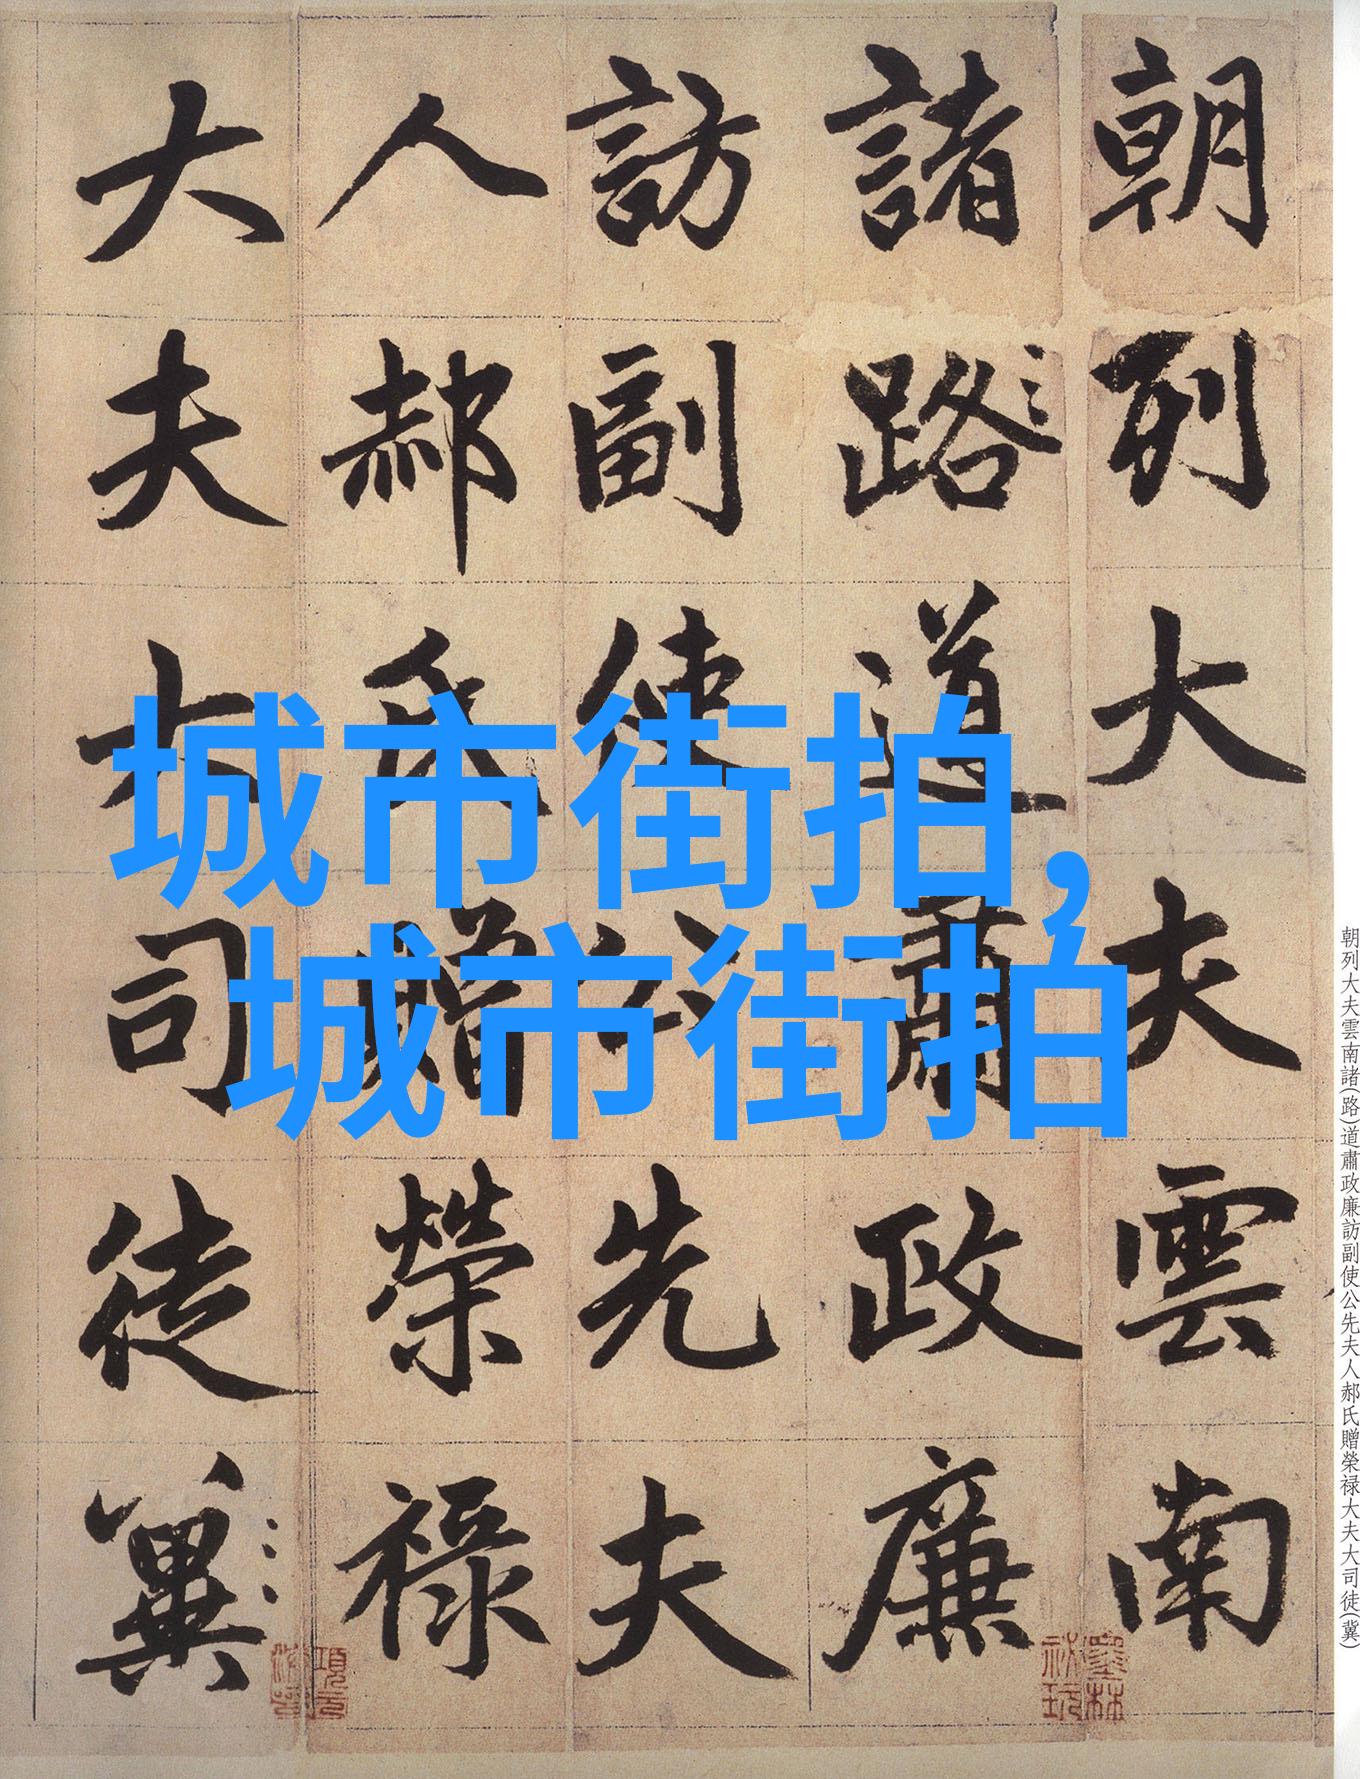 朝列大夫雲南
諸路道肅政廉
訪副使公先夫
人郝氏贈榮禄
大夫大司徒冀
城市街拍,
城市街拍
朝列大夫雲南諸(路)道肅政廉訪副使公先夫人郝氏贈榮禄大夫大司徒(冀)